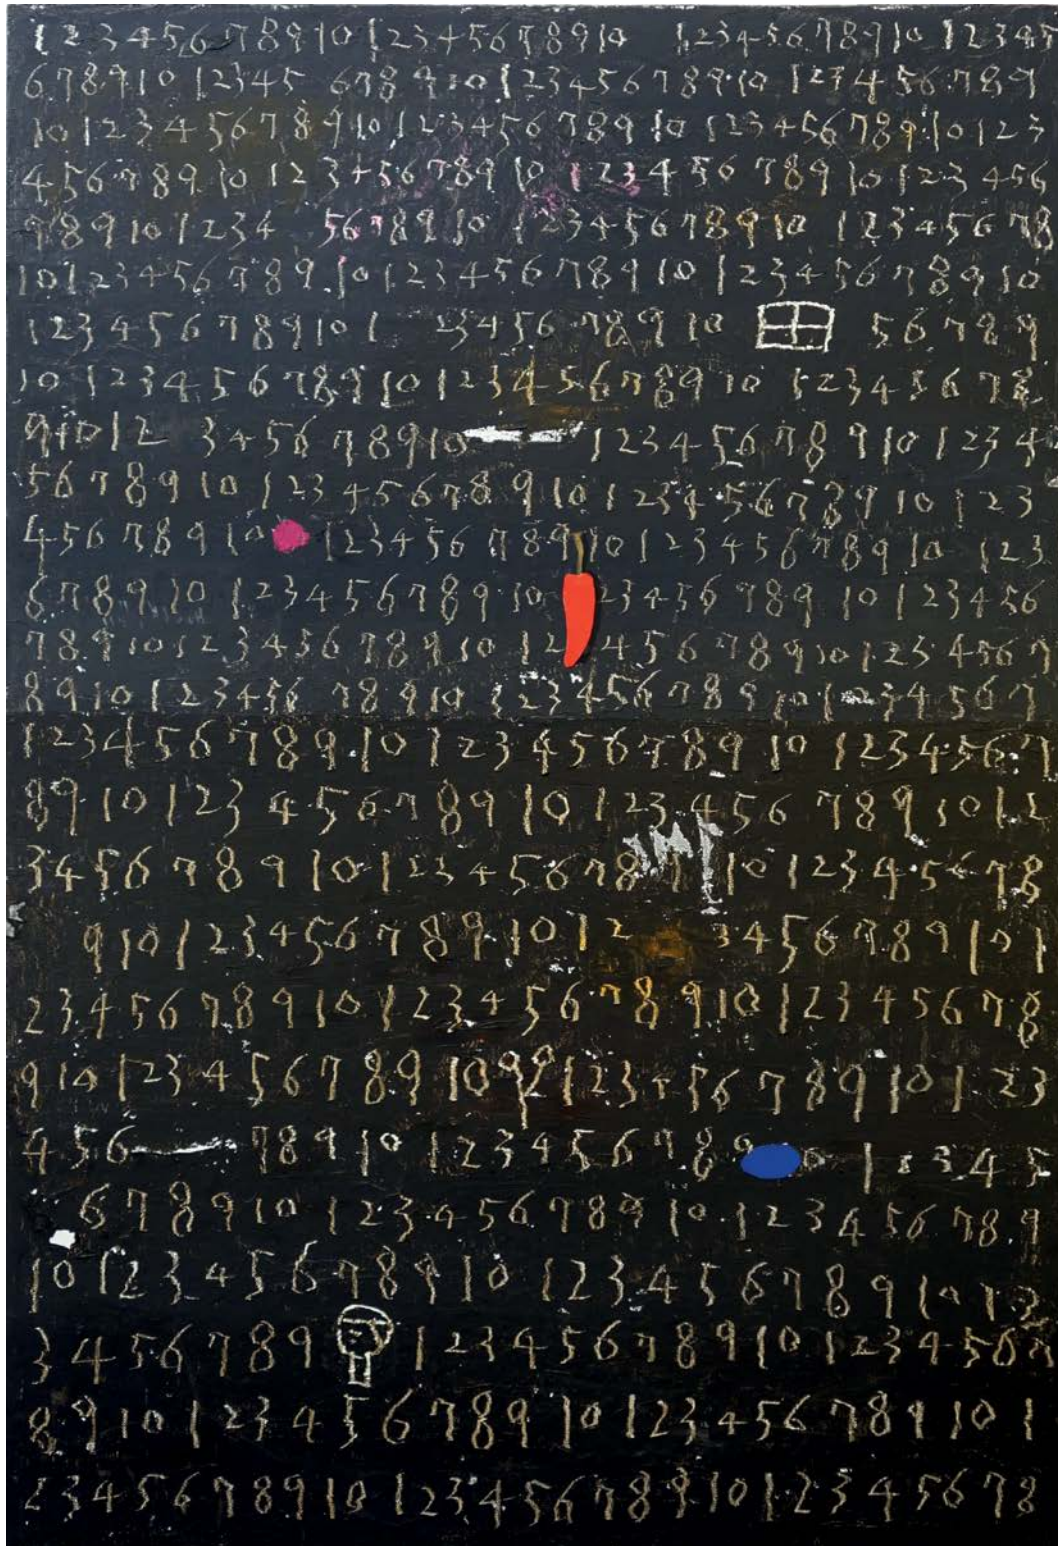 1 2 3 4 5 6 7 8 9 10 1 2 3 4 5 6 7 8 9 10 1 2 3 4 5 6 7 8 9 10 1 2 3 4 5
6 7 8 9 10 1 2 3 4 5 6 7 8 9 10 1 2 3 4 5 6 7 8 9 10 1 2 3 4 5 6 7 8 9
10 1 2 3 4 5 6 7 8 9 10 1 2 3 4 5 6 7 8 9 10 1 2 3 4 5 6 7 8 9 10 1 2 3
4 5 6 7 8 9 10 1 2 3 4 5 6 7 8 9 10 1 2 3 4 5 6 7 8 9 10 1 2 3 4 5 6
7 8 9 10 1 2 3 4 5 6 7 8 9 10 1 2 3 4 5 6 7 8 9 10 1 2 3 4 5 6 7 8
10 1 2 3 4 5 6 7 8 9 10 1 2 3 4 5 6 7 8 9 10 1 2 3 4 5 6 7 8 9 10
1 2 3 4 5 6 7 8 9 10 1 2 3 4 5 6 7 8 9 10 5 6 7 8 9
10 1 2 3 4 5 6 7 8 9 10 1 2 3 4 5 6 7 8 9 10 1 2 3 4 5 6 7 8
9 10 1 2 3 4 5 6 7 8 9 10 1 2 3 4 5 6 7 8 9 10 1 2 3 4
5 6 7 8 9 10 1 2 3 4 5 6 7 8 9 10 1 2 3 4 5 6 7 8 9 10 1 2 3
4 5 6 7 8 9 10 1 2 3 4 5 6 7 8 9 10 1 2 3 4 5 6 7 8 9 10 1 2 3
6 7 8 9 10 1 2 3 4 5 6 7 8 9 10 2 3 4 5 6 7 8 9 10 1 2 3 4 5 6
7 8 9 10 1 2 3 4 5 6 7 8 9 10 1 2 4 5 6 7 8 9 10 1 2 3 4 5 6 7
8 9 10 1 2 3 4 5 6 7 8 9 10 1 2 3 4 5 6 7 8 9 10 1 3 4 5 6 7
1 2 3 4 5 6 7 8 9 10 1 2 3 4 5 6 7 8 9 10 1 2 3 4 5 6 7
8 9 10 1 2 3 4 5 6 7 8 9 10 1 2 3 4 5 6 7 8 9 10 1 2
3 4 5 6 7 8 9 10 1 2 3 4 5 6 7 8 9 10 1 2 3 4 5 6 7 8
9 10 1 2 3 4 5 6 7 8 9 10 1 2 3 4 5 6 7 8 9 10 1
2 3 4 5 6 7 8 9 10 1 2 3 4 5 6 7 8 9 10 1 2 3 4 5 6 7 8
9 10 1 2 3 4 5 6 7 8 9 10 1 2 3 5 6 7 8 9 10 1 2 3
4 5 6 7 8 9 10 1 2 3 4 5 6 7 8 9 1 2 3 4 5
6 7 8 9 10 1 2 3 4 5 6 7 8 9 10 1 2 3 4 5 6 7 8 9
10 1 2 3 4 5 6 7 8 9 10 1 2 3 4 5 6 7 8 9 10 1 2
3 4 5 6 7 8 9 1 2 3 4 5 6 7 8 9 10 1 2 3 4 5 6 7
8 9 10 1 2 3 4 5 6 7 8 9 10 1 2 3 4 5 6 7 8 9 10 1
2 3 4 5 6 7 8 9 10 1 2 3 4 5 6 7 8 9 10 1 2 3 4 5 6 7 8